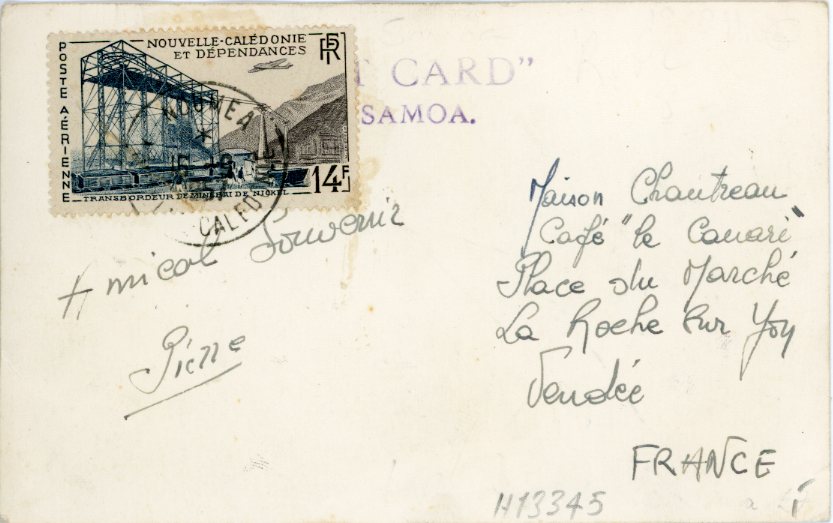 NOUVELLE-CALÉDONIE
ET DÉPENDANCES
RF
POSTE AÉRIENNE
TRANSBORDEUR DE MINERAI DE NICKEL
14F
NOUMEA
CALED
CARD"
SAMOA.
Amical Souvenir
Pierre
Maison Chautreau
Café "le Canari"
Place du Marché
La Roche sur Yon
Vendée
FRANCE
H13345